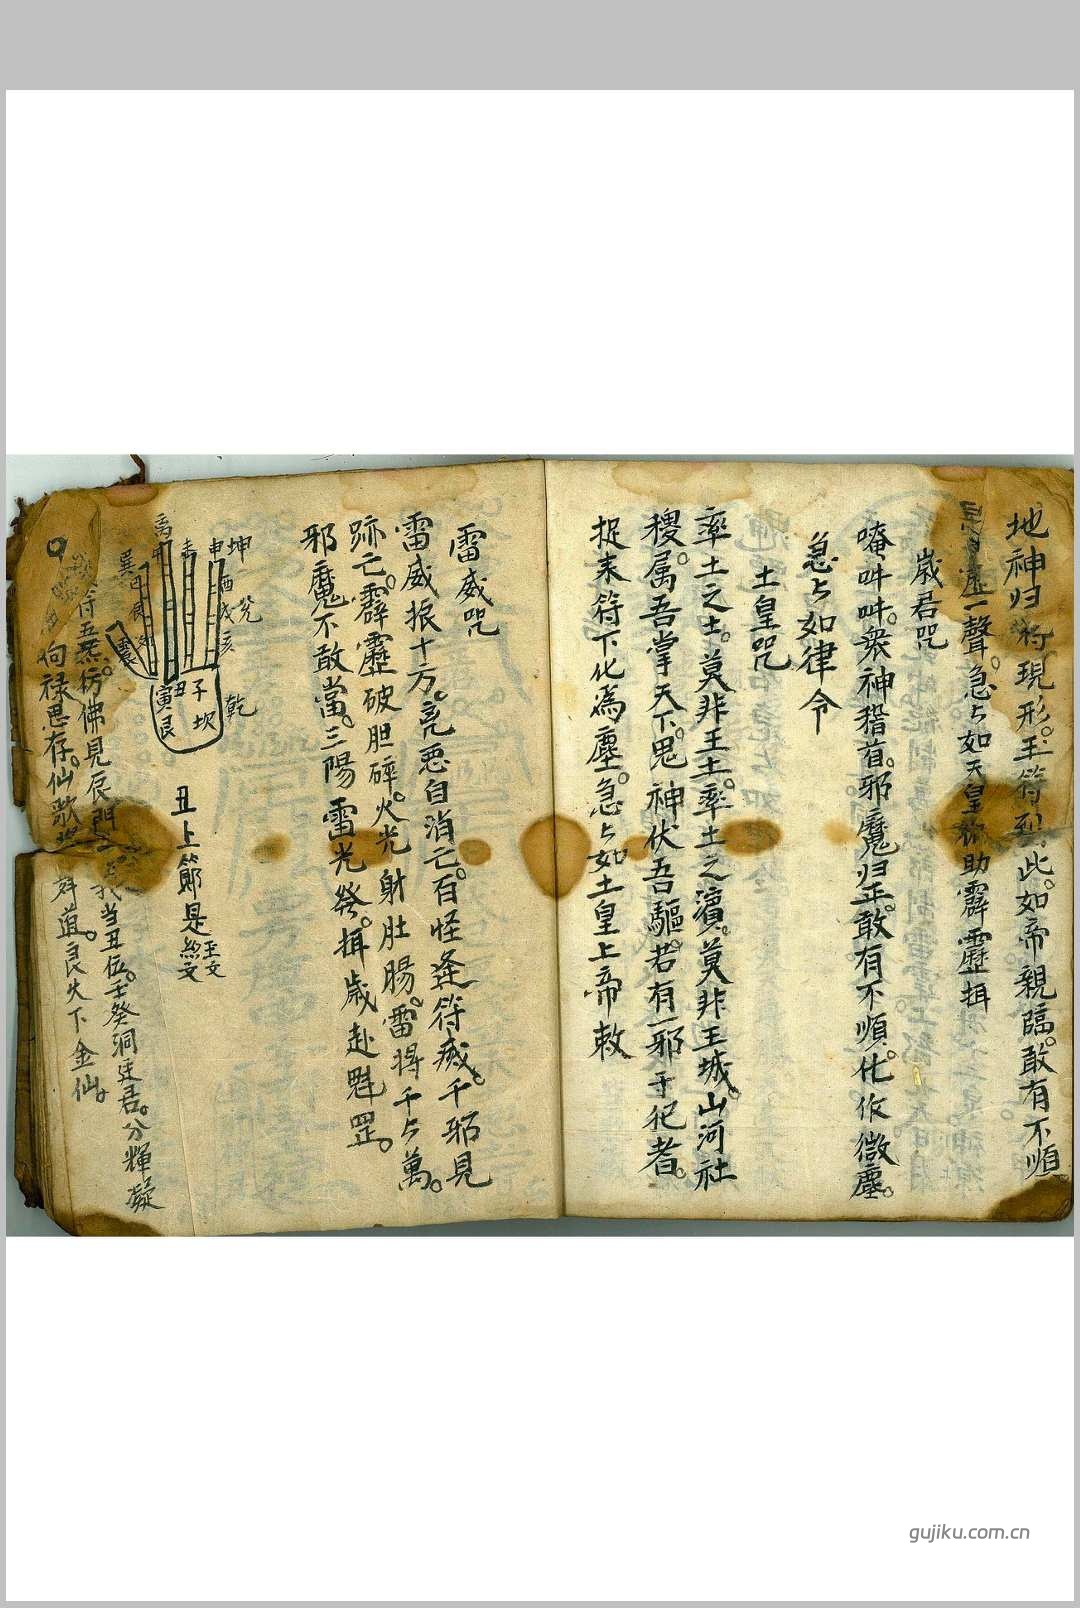 地神归 将現形。玉符到此。如帝親臨。敢有不順。
一聲。急々如天皇 助霹靂揖
歲君咒
唵吽吽。衆神稽首。邪魔归正。敢有不順。化作微塵。
急々如律令
土皇咒
率土之土。莫非王土。率土之濱。莫非王城。山河社
稷。属吾掌天下。鬼神伏吾驅。若有一邪于犯者。
捉来符下化為塵。急々如土皇上帝敕
雷威咒
雷威振十方。亮悪自消亡。百怪逢符滅。千邪見
跡亡。霹靂破胆碎。火光射肚腸。雷將千々萬。
邪魔不敢當。三陽雷光發。揖歲赴魁罡。
坤
申
酉
戌
亥
乾
午
巽
巳
震
子
坎
丑
寅
艮
丑上節是
玉文
符五炁。彷佛見辰門 我当丑伍。壬癸洞廷君。分輝凝
思存。仙歌 舞道。良火下金仙。
gujiku.com.cn